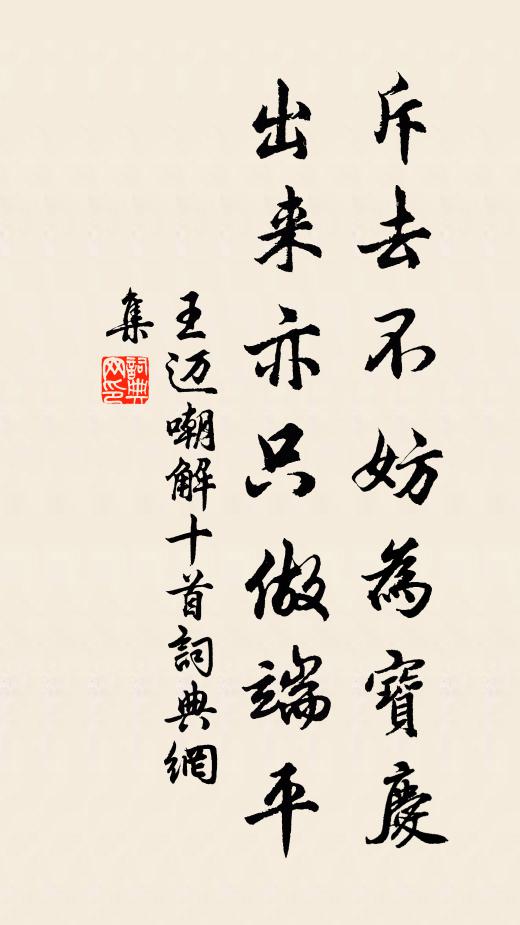 斥去不妨為寶慶
出来亦只做端平
王迈嘲解十首詞典網
集
詞典网印